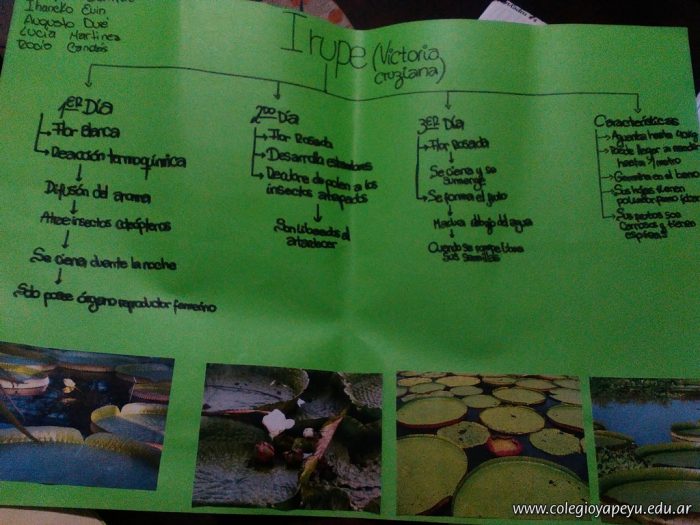 Ihaneko Euin
Augusto
Lucia Martinez
Rocio
Irupe (Victoria
Cruziana)
1ER Día
Flor Blanca
Reacción termoquímica
Difusión del aroma
Atrae insectos coleópteros
Se cierra durante la noche
Solo posee órgano reproductor femenino
2DO Día
Flor Rosada
Desarrolla estambres
Recubre de polen a los
insectos atrapados
Son liberados al
atardecer
3ER Día
Flor Rosada
Se cierra y se
sumerge
Se forma el fruto
Madura debajo del agua
Cuando se rompe libera
sus semillas
Características
Aguanta hasta
Puede llegar a medir
hasta 1 metro
Germina en el barro
Sus hojas tienen
Sus
Carnosos y tienen
espinas
www.colegioyapeyu.edu.ar